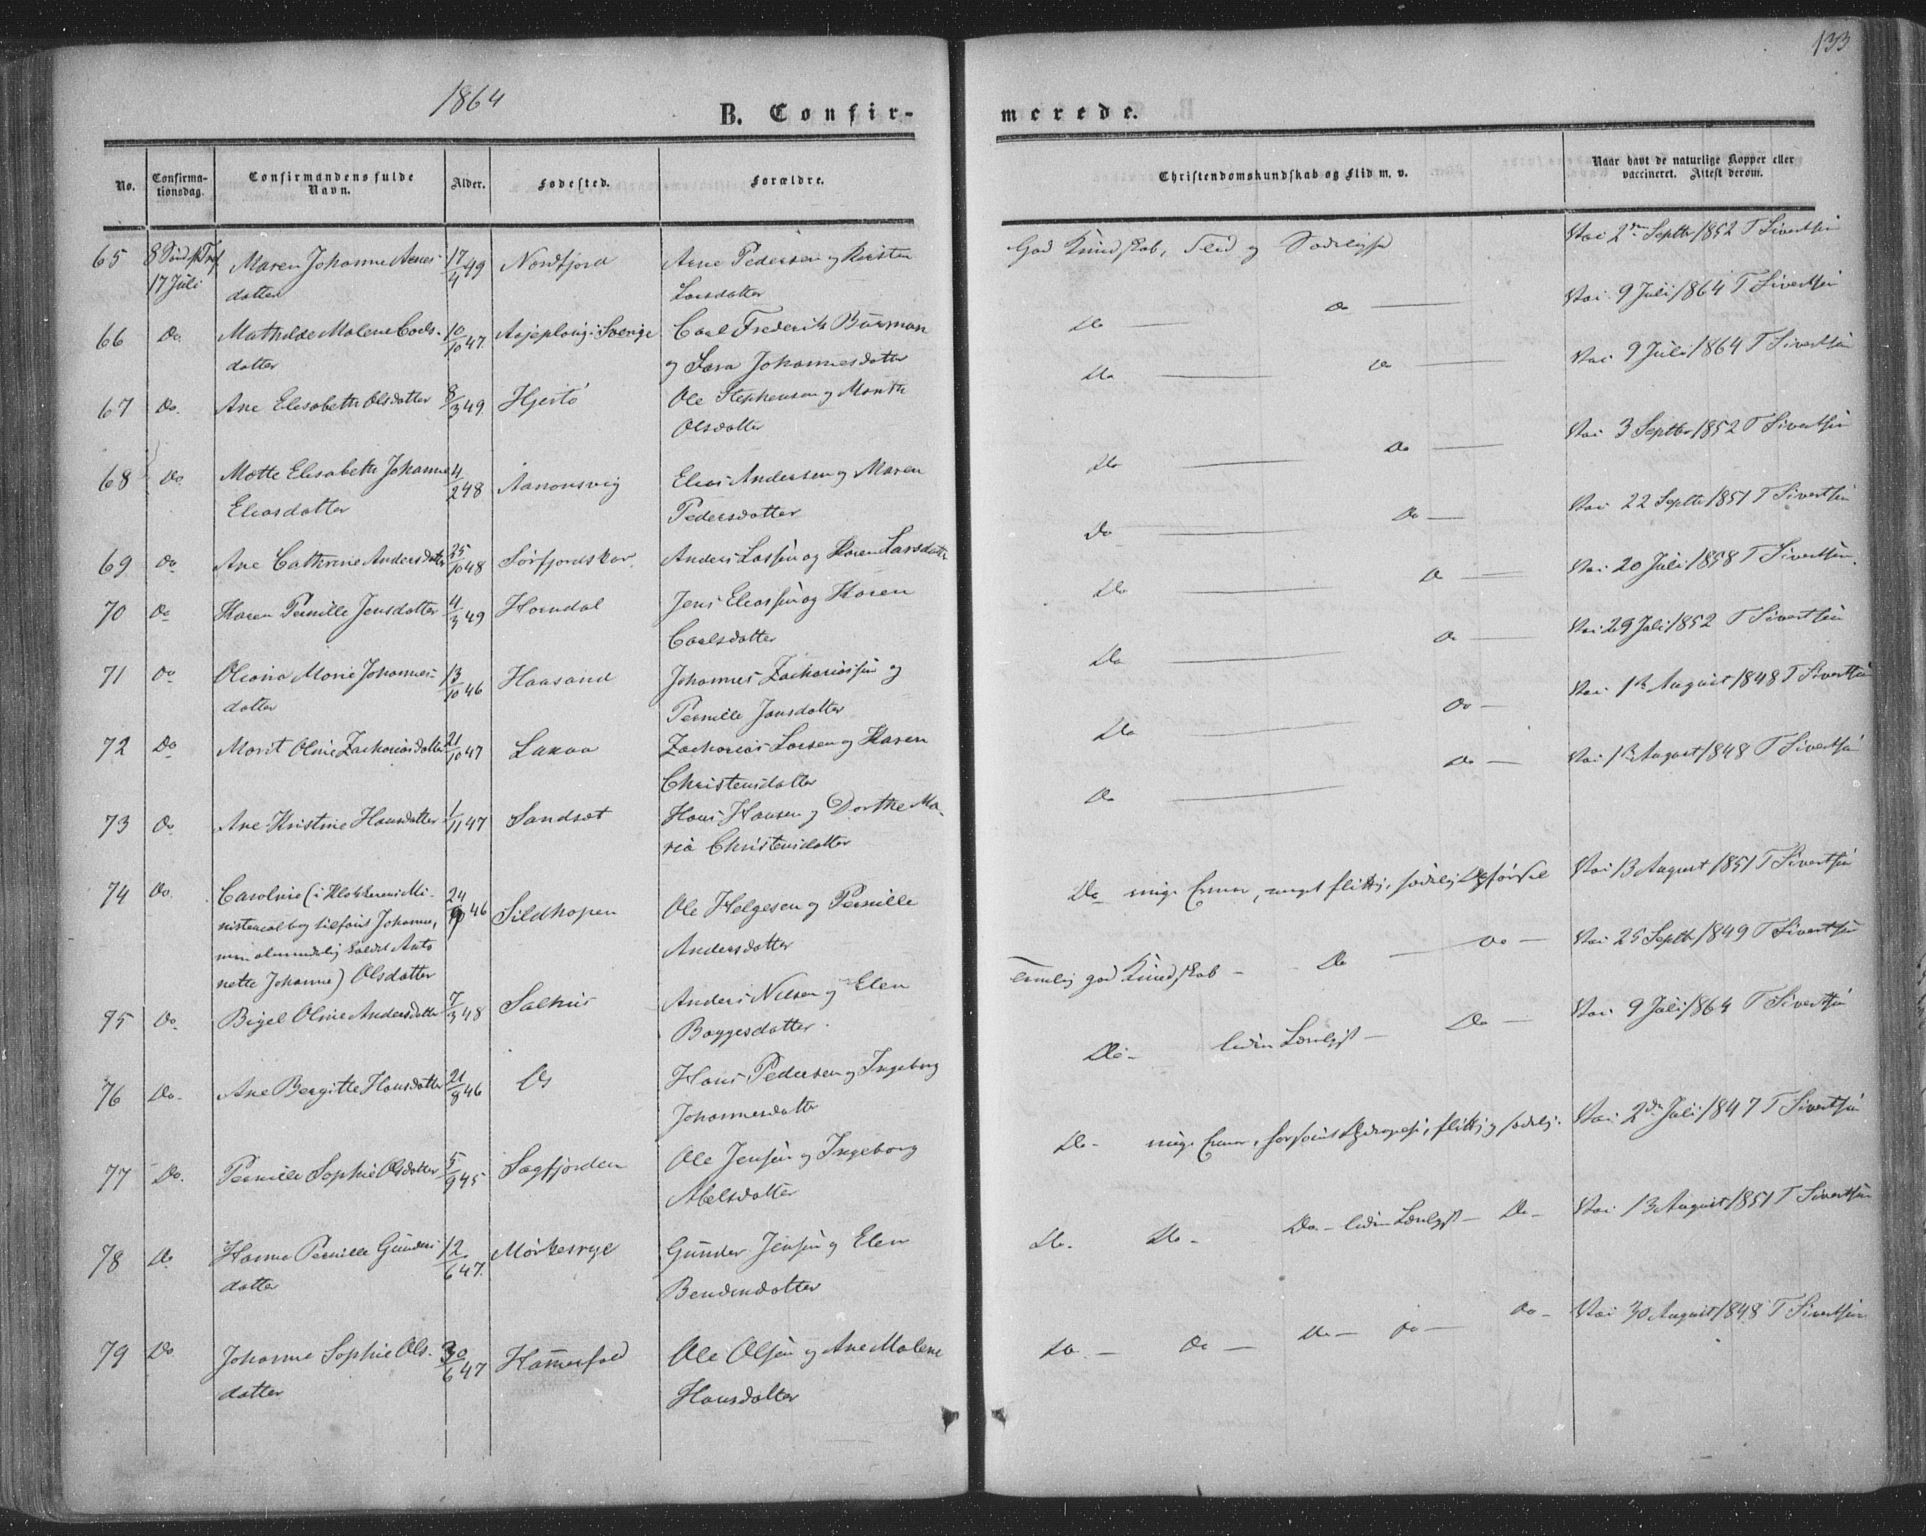 133
1864
B. Confir-
merede.
No.
Confirma-
tionsdag.
Confirmandens fulde
Navn.
Alder.
Fødested.
Forældre.
Christendomskundskab og Flid m. v.
Naar havt de naturlige Kopper eller
vaccineret. Attest derom.
65 8 Sind. f. Tref. Maren Johanne Arnes- 17/4 49 Nordfjord Arne Pedersen og Kirsten God Kundskab, Flid og Sædelighe Vac. 2den Septbr 1852 T Sivertsen
17 Juli datter Larsdatter
66 Do. Mathilde Malene Carls- 10/10 47. Arjeploug i Sverige Carl Frederik Burman Do — Do — Vac. 9 Juli 1864 T Sivertsen
datter og Sara Johannesdatter
67 Do. Ane Elisabeth Olsdatter 8/3 49 Hjertø Ole Stephensen og Marith Do — Do — Vac. 9 Juli 1864 T Sivertsen
Olsdatter
68 Do Mette Elisabeth Johanne 4/2 48 Aanonsvig Elias Andersen og Maren Do — Do — Vac. 3 Septbr 1852 T Sivertsen
Eliasdatter Pedersdatter
69 Do Ane Cathrine Andersdatter 25/10 48 Sørfjordskar. Anders Larsen og Karen Larsdatter Do — Do — Vac. 22 Septbr 1851 T Sivertsen
70 Do Karen Pernille Jensdatter 4/3 49 Horndal Jens Eliassen og Karen Do — Do — Vac. 20 Juli 1858 T Sivertsen.
Carlsdatter
71 Do Oliana Marie Johannes- 13/10 46 Haasand Johannes Zachariassen og Do — Do — Vac. 29 Juli 1852 T Sivertsen
datter Pernille Jonsdatter
72 Do Marit Oline Zachariasdatter 21/10 47 Laxaa Zacharias Larsen og Karen Do — Do — Vac. 1ste August 1848 T Sivertsen
Christensdatter
73 Do Ane Kristine Hansdatter 1/11 47 Sandsæt Hans Hansen og Dorthe Ma- Do — Do — Vac. 1ste August 1848 T Sivertsen
ria Christensdatter
74 Do. Caroline (i Klokkerens Mi- 24/9 46 Sildhopen Ole Helgesen og Pernille Do flittig, sædelig Opførsel Vac. 13 August 1851 T Sivertsen
nisterialbog tilføiet Johanne,
men almindelig kaldet Anto Andersdatter
nette Johanne) Olsdatter
75 Do. Birgel Oline Andersdatter 7/3 48 Salhus Anders Nilsen og Elen Temlig god Kundskab — Do — Do — Vac. 25 Septbr 1849 T Sivertsen
Baggesdatter.
76 Do. Ane Bergitte Hansdatter 21/8 46 Os Hans Pedersen og Ingeborg Do — liden Lærelyst — Do — Vac. 9 Juli 1864 T Sivertsen
Johannesdatter
77 Do. Pernille Sophie Olsdatter 5/9 45 Sagfjorden Ole Jensen og Ingeborg Do — flittig og sædelig. Vac. 2den Juli 1847 T Sivertsen
Abelsdatter
78 Do Hanna Pernille Gunders 12/6 47. Mørkesvge Gunder Jensen og Elen Do. Do — Do — liden Lærelyst — Do — Vac. 13 August 1851 T Sivertsen
datter
79 Do Johanne Sophie Ols- 30/6 47 Hammerfald Ole Olsen og Ane Malene Do. — Do — Do — Do — Do — Vac. 30 August 1848 T Sivertsen
datter Hansdatter